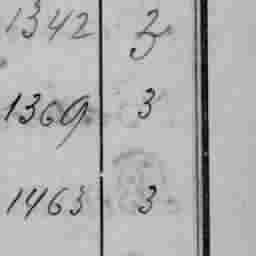 1342 3
1369 3
1463 3